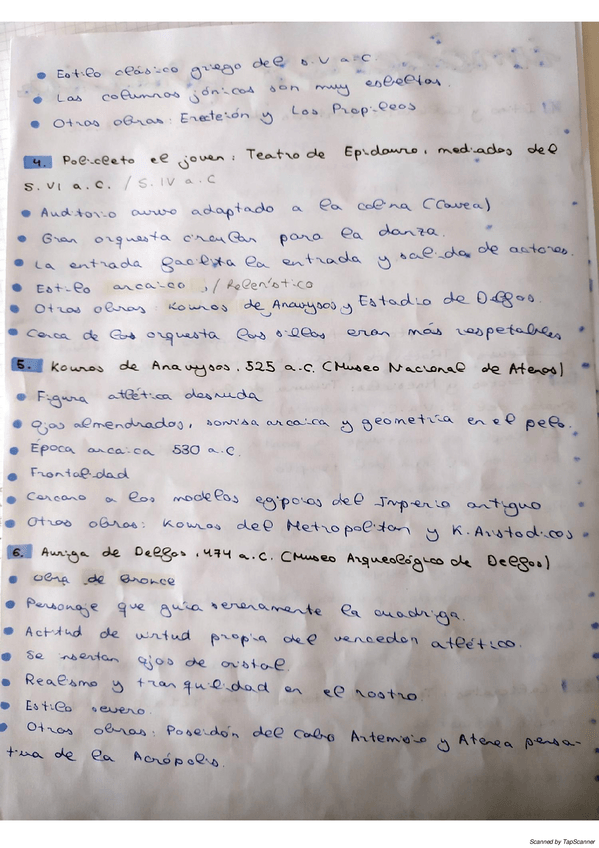 • Estilo clásico griego del s.V a.C.
• Las columnas jónicas son muy esbeltas.
• Otras obras: Erecteión y Los Propileos
4. Policleto el joven: Teatro de Epidauro, mediados del
S. VI a.C. / S. IV a.C
• Auditorio curvo adaptado a la colina (Cavea)
• Gran orquesta circular para la danza.
• La entrada facilita la entrada y salida de actores.
• Estilo arcaico, / Helenístico
• Otras obras: Kouros de Anavysos y Estadio de Delfos.
• Cerca de las orquesta las sillas eran más respetables
5. Kouros de Anavysos, 525 a.C. (Museo Nacional de Atenas)
• Figura atlética desnuda
• Ojos almendrados, sonrisa arcaica y geometría en el pelo.
• Época arcaica 530 a.C.
• Frontalidad
• Cercano a los modelos egipcios del Imperio antiguo
• Otras obras: Kouros del Metropolitan y K. Aristodicos
6. Auriga de Delfos, 474 a.C. (Museo Arqueológico de Delfos)
• Obra de bronce
• Personaje que guía serenamente la cuadriga.
• Actitud de virtud propia del vencedor atlético.
• Se insertan ojos de cristal.
• Realismo y tranquilidad en el rostro.
• Estilo severo.
• Otras obras: Poseidón del Cabo Artemisio y Atenea pensa-
tiva de la Acrópolis.
Scanned by TapScanner